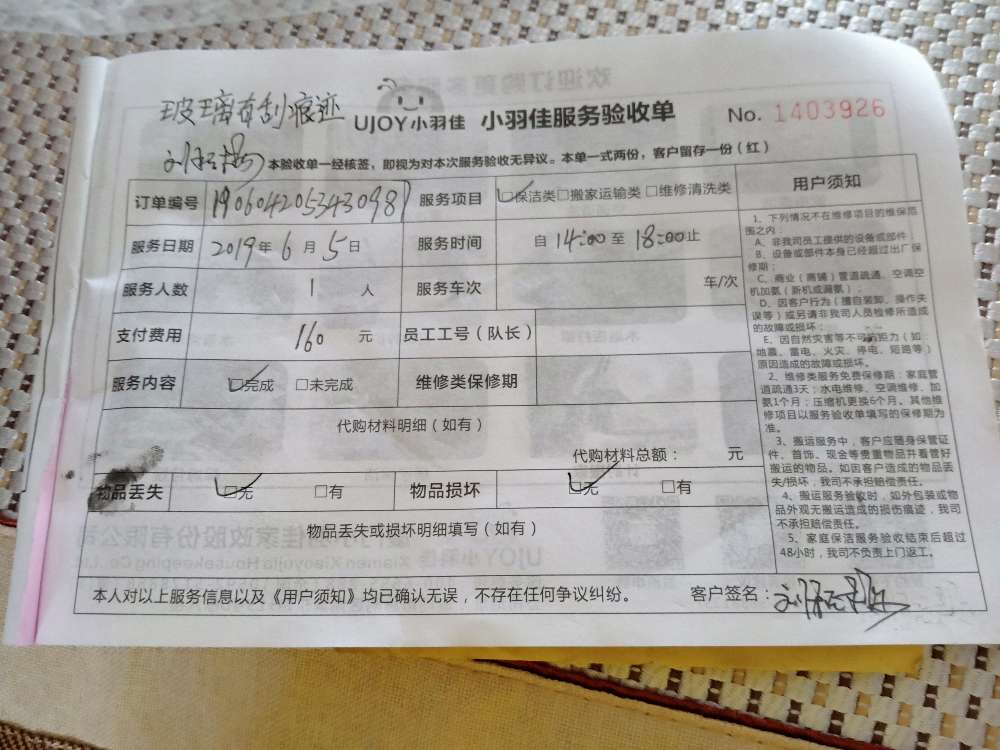 玻璃有刮痕迹
UJOY小羽佳 小羽佳服务验收单 No. 1403926
本验收单一经核签，即视为对本次服务验收无异议。本单一式两份，客户留存一份（红）
订单编号 1906042053430981 服务项目 ☑保洁类□搬家运输类□维修清洗类
服务日期 2019年6月5日 服务时间 自14:00至18:00止
服务人数 1人 服务车次 车/次
支付费用 160元 员工工号（队长）
服务内容 ☑完成 □未完成 维修类保修期
代购材料明细（如有）
代购材料总额： 元
物品丢失 ☑无 □有 物品损坏 ☑无 □有
物品丢失或损坏明细填写（如有）
本人对以上服务信息以及《用户须知》均已确认无误，不存在任何争议纠纷。 客户签名：
用户须知
1、下列情况不在维修项目的维保范
围之内：
A、非我司员工提供的设备或部件；
B、设备或部件本身已经超过出厂保
修期；
C、商业（商铺）管道疏通、空调空
机加氨（新机或漏氨）；
D、因客户行为（擅自装卸、操作失
误等）或另请非我司人员检修所造成
的故障或损坏；
E、因自然灾害等不可抗拒力（如：
地震、雷电、火灾、停电、短路等）
原因造成的故障或损坏。
2、维修类服务免费保修期：家庭管
道疏通3天；水电维修、空调维修、加
氨1个月；压缩机更换6个月。其他维
修项目以服务验收单填写的保修期为
准。
3、搬运服务中，客户应随身保管证
件、首饰、现金等贵重物品并看管好
搬运的物品。如因客户造成的物品丢
失/损坏，我司不承担赔偿责任。
4、搬运服务验收时，如外包装或物
品外观无搬运造成的损伤痕迹，我司
不承担赔偿责任。
5、家庭保洁服务验收结束后超过
48小时，我司不负责上门返工。